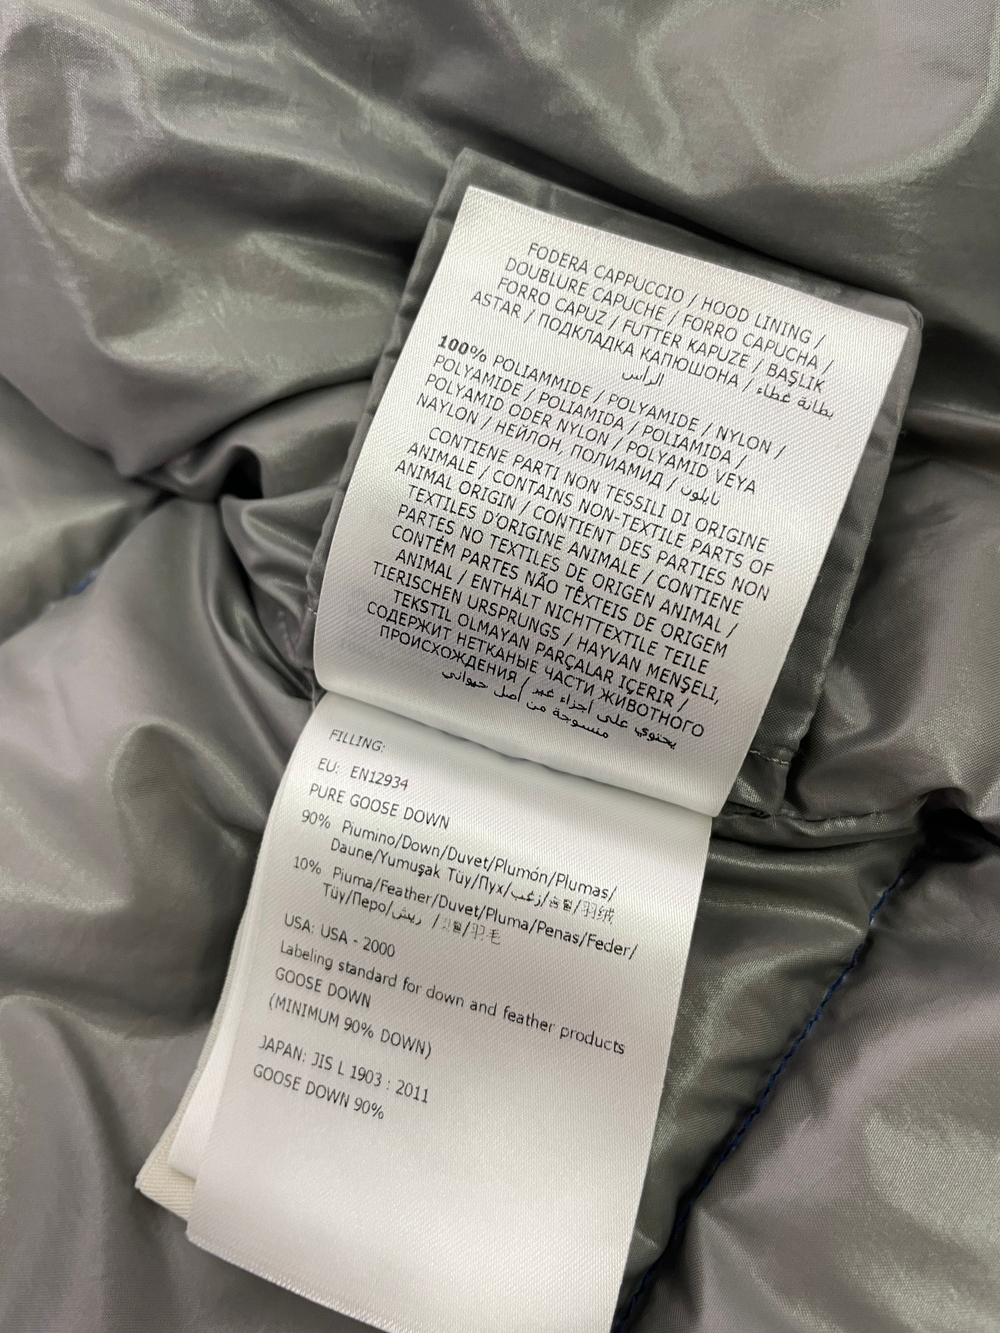 FODERA CAPPUCCIO / HOOD LINING /
DOUBLURE CAPUCHE / FORRO CAPUCHA /
FORRO CAPUZ / FUTTER KAPUZE / BAŞLIK
ASTAR / ПОДКЛАДКА КАПЮШОНА / بطانة غطاء
الرأس
100% POLIAMMIDE / POLYAMIDE / NYLON /
POLYAMIDE / POLIAMIDA / POLIAMIDA /
POLYAMID ODER NYLON / POLYAMID VEYA
NAYLON / НЕЙЛОН, ПОЛИАМИД / نايلون
CONTIENE PARTI NON TESSILI DI ORIGINE
ANIMALE / CONTAINS NON-TEXTILE PARTS OF
ANIMAL ORIGIN / CONTIENT DES PARTIES NON
TEXTILES D'ORIGINE ANIMALE / CONTIENE
PARTES NO TEXTILES DE ORIGEN ANIMAL /
CONTÉM PARTES NÃO TÊXTEIS DE ORIGEM
ANIMAL / ENTHÄLT NICHTTEXTILE TEILE
TIERISCHEN URSPRUNGS / HAYVAN MENŞELI,
TEKSTIL OLMAYAN PARÇALAR IÇERIR /
СОДЕРЖИТ НЕТКАНЫЕ ЧАСТИ ЖИВОТНОГО
ПРОИСХОЖДЕНИЯ / يحتوي على أجزاء غير
منسوجة من أصل حيواني
FILLING:
EU: EN12934
PURE GOOSE DOWN
90% Piumino/Down/Duvet/Plumón/Plumas/
Daune/Yumuşak Tüy/Пух/زغب/羽绒
10% Piuma/Feather/Duvet/Pluma/Penas/Feder/
Tüy/Перо/ريش /羽毛
USA: USA - 2000
Labeling standard for down and feather products
GOOSE DOWN
(MINIMUM 90% DOWN)
JAPAN: JIS L 1903 : 2011
GOOSE DOWN 90%